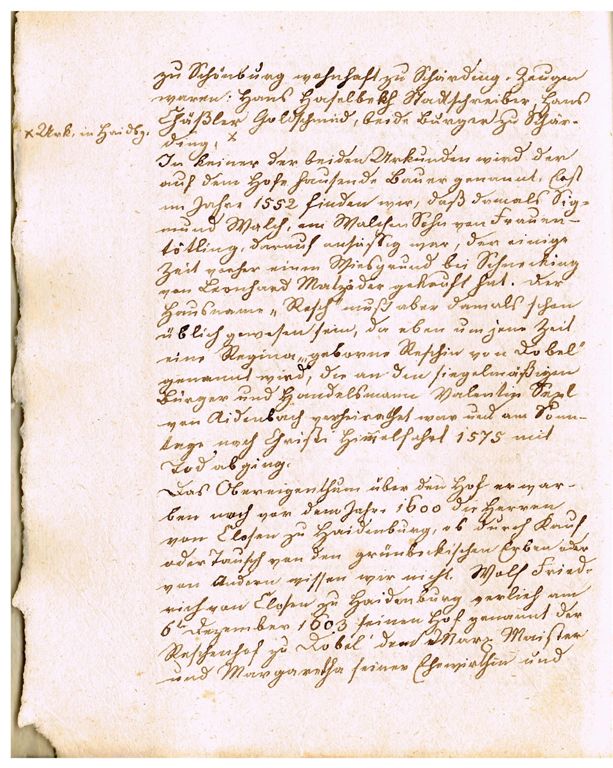 zu Schönburg wohnhaft zu Schärding. Zeugen
waren: Hans Haselbekh Stadtschreiber, Hans
Goldschmid, beide Bürger zu Schär-
ding. ×
× Urk. in Haidbg.
In keiner der beiden Urkunden wird der
auf dem Hofe hausende Bauer genannt. Erst
im Jahre 1552 finden wir, daß damals Sig-
mund Walch, ein Walchen Sohn von Frauen-
tötling, darauf ansässig war, der einige
Zeit vorher einen Wiesgrund bei
von Leonhard gekauft hat. Der
Hausname „Resch“ muß aber damals schon
üblich gewesen sein, da eben um jene Zeit
eine Regina „geborne Reschin von Dobel“
genannt wird, die an den siegelmäßigen
Bürger und Handelsmann Valentin
von Aidenbach verheirathet war und am Sonn-
tage nach Christi Himmelfahrt 1575 mit
Tod abging.
Das Obereigenthum über den Hof erwar-
ben noch vor dem Jahre 1600 die Herren
von Closen zu Haidenburg, ob durch Kauf
oder Tausch von den grünbeckischen Erben oder
von Andern wissen wir nicht. Wolf Fried-
rich von Closen zu Haidenburg verlieh am
6t Dezember 1603 seinen Hof genannt der
Reschenhof zu Dobel dem Marx Maister
und Margaretha seiner Ehewirthin und